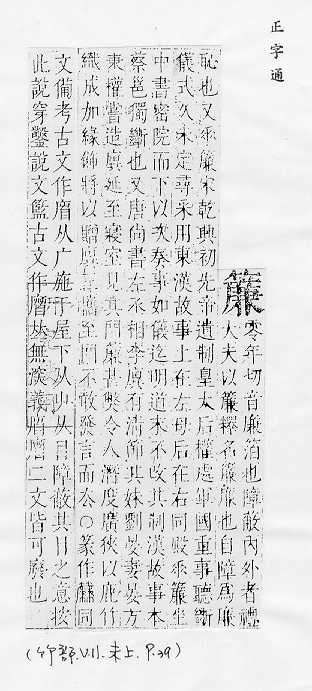 正字通
簾零年切音廉箔也障蔽內外者禮
大夫以簾釋名簾廉也自障爲廉
恥也又垂簾宋乾興初先帝遺制皇太后權處軍國重事聽斷
儀式久未定尋采用東漢故事上在左母后在右同殿垂簾坐
中書密院而下以次奏事如儀迄明道末不改其制漢故事本
蔡邕獨斷也又唐尚書左丞相李廙有清節其妹劉晏妻晏方
秉權嘗造廙延至寢室見其門簾甚獘令人潛度廣狹以麤竹
織成加緣飾將以贈廙三攜至門不敢發言而去○篆作 同
文備考古文作 从广施于屋下从 从目障蔽其目之意按
此說穿鑿說文籃古文作 𠀤無簾義 二文皆可廢也
(竹部.V.II.未上.P.39)